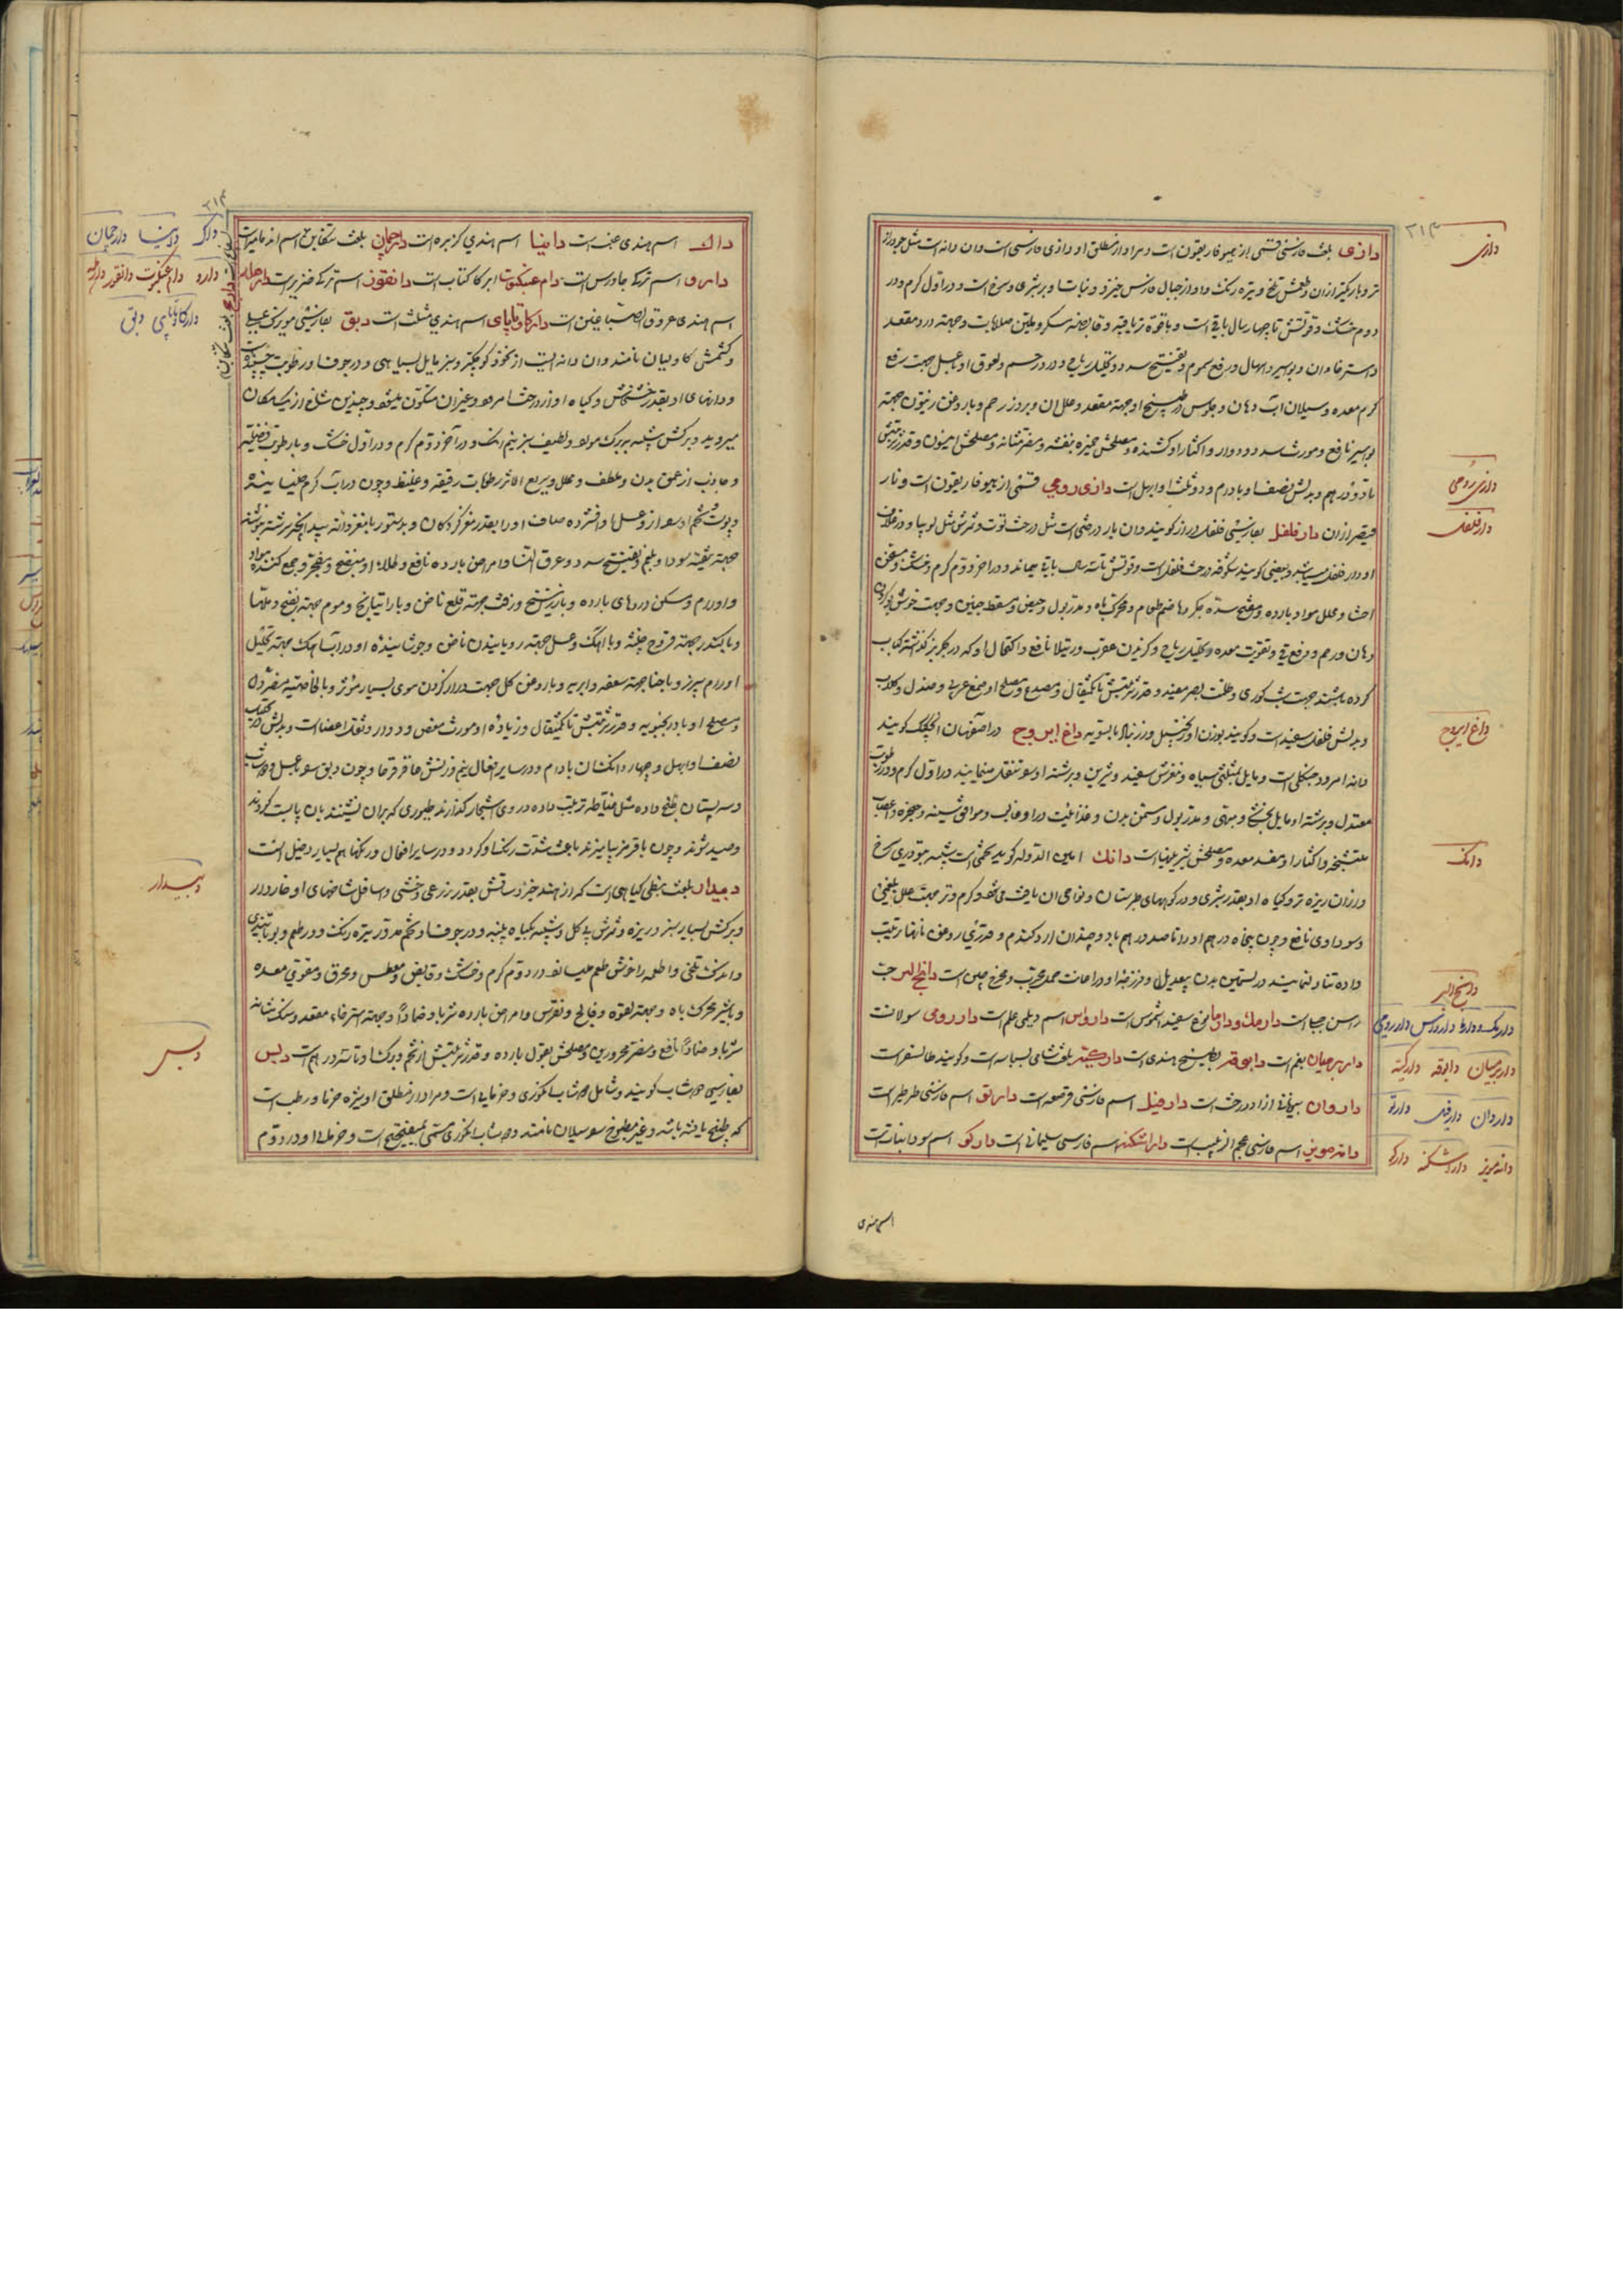 دازی بلغت فارسی قسمی از هیوفاریقون است و مراد از مطلق او دازی فارسی است و ان دانه است مثل جو دراز
تر و باریکتر از ان و طعمش تلخ و تیره رنک و او از جبال فارس خیزد و نبات او بر شبری و سرخ است و در اول کرم و در
دوم خشک و قوتش تا چهار سال باقی است و با قوة تریاقیه و قابضه مسکر و ملین صلابات و جهته درد مقعد
و استرخاء ان و بواسیر و اسهال و رفع سموم و تفتیح سدد و تحلیل ریاح و درد رحم و لعوق او با عسل جهت رفع
کرم معده و سیلان اب دهان و جلوس در طبیخ او جهته مقعد و علل ان و بروز رحم و با روغن زیتون جهته
بواسیر نافع و مورث سدد و دوار و اکثار او کشنده و مصلحش خمیره بنفشه و مضر مثانه و مصلحش انیسون و قدر شربتش
تا دو درهم و بدلش نصف او بادرم و دو ثلث او ابهل است دازی رومی قسمی از هیوفاریقون است و نار
قیصر از ان دار فلفل بفارسی فلفل دراز کویند و ان بار درختی است مثل درخت توت و ثمرش مثل لوبیا و در غلاف
او دار فلفل میباشد و بعضی کویند شکوفه درخت فلفل است و قوتش تا سه سال باقی میماند و در اخر دوم کرم و خشک و مسخن
احشا و محلل مواد بارده و مفتح سده جکر و هاضم طعام و محرک باه و مدر بول و حیض و مسقط جنین و جهت خوش بو کردن
دهان و رحم و رفع قی و تقویت معده و تحلیل ریاح و کزیدن عقرب و رتیلا نافع و اکتحال او که در جکر بز کذاشته کباب
کرده باشند جهت شب کوری و ظلمت بصر مفید و قدر شربتش تا یکمثقال و مصدع و مصلح او صمغ عربی و صندل و کلاب
و بدلش فلفل سفید است و کویند بوزن او زنجبیل و زرنباد بالسویه داغ ابروج در اصفهان انچکک کویند
دانه امرود جنکلی است و مایل بمثلثی سیاه و مغزش سفید و شیرین و برشته او تنقل مینمایند در اول کرم و در رطوبت
معتدل و برشته او مایل بخشکی و مبهی و مدر بول و مسمن بدن و غذائیت در او غالب و موافق سینه و حنجره و اعصاب
متشنجه و اکثار او مفسد معده و مصلحش شیرینیها است دانک امین الدوله کوید تخمی است شبیه بتودری سرخ
و از ان ریزه تر و کیاه او بقدر شبری و در کوههای طبرستان و نواحی ان یافت میشود و کرم و تر و جهته علل بلغمی
و سوداوی نافع و چون پنجاه درهم او را تا صد درهم با دو چندان ارد کندم و قدری روغن بانها ترتیب
داده تناول نمایند در تسمین بدن بیعدیل و فرزجه او در اعانت حمل مجرب و مخرج جنین است دانج ابرج
راسن جبلی است دارمک و دارما نوع سفید اشموس است داروس اسم دیلمی علم است دار رومی سولانت
دار برمیان بقم است دابوقه بطیخ هندی است دارکیسه بلغت شامی بسباسه است و کویند طالیسفر است
داروان سیوفانی ازاد درخت است دار فیل اسم فارسی قرصعنه است دارتق اسم فارسی طرطیر است
دانه مویز اسم فارسی عجم الزبیب است داراشکنه اسم فارسی سلیمانی است دارکو اسم سودانیات است
دازی
۳۱۳
دازی رومی
دار فلفل
داغ ابروج
دانک
دانج ابرج
دارمک و دارما داروس دار رومی
دار برمیان دابوقه دارکیسه
داروان دار فیل دارتق
دانه مویز داراشکنه دارکو
اسم هندی
داک اسم هندی عنب است دانیا اسم هندی کزبره است دارچمان بلغت تنکابن اسم اندمامیر است
دارو اسم ترکی جاورس است دام عنکبوت ابرکاکتاب است دانقوز اسم ترکی خنزیر است دارهلد
اسم هندی عروق الصباغین است دارکاوتاپای اسم هندی مثلث است دبق بفارسی مویزک عسلی
و کشمش کاولیان نامند و ان دانه ایست از نخود کوچکتر و سبز مایل بسیاهی و در جوف او رطوبت چسبنده
و دانهای او بقدر خشخاش و کیاه او از درخت امرود و غیر ان متکون میشود و چندین شاخ از یک مکان
میروید و برکش شبیه ببرک مورد و لطیف سبز نیم رنک و در اخر دوم کرم و در اول خشک و با رطوبت فضلیه
و جاذب از عمق بدن و ملطف و محلل و سریع الاثر رطوبات رقیقه و غلیظ و چون در اب کرم خیسانیده
و پوست و تخم او سوا از او و عسل او فشرده صاف او را بقدر مغز کردکان و بدستور با مغز دانه بیدانجیر سرشته بنوشند
جهته تنقیه سودا و بلغم و تفتیح سدد و عرق النسا و امراض بارده نافع و طلاء او منضج و مفجر و جمع کننده مواد
و اورام و مسکن دردهای بارده و با زرنیخ و زفت جهته قلع ناخن و با راتیانج و موم جهته نضج دملها
و با کندر جهته قروح خبیثه و با اهک و عسل جهته رویانیدن ناخن و جوشانیده او در اب اهک جهته تحلیل
اورام سپرز و با حنا جهته سعفه و ابریه و با روغن کل جهت دراز کردن موی بسیار مؤثر و بالخاصیه مضر دل
و مصلح او بادرنجبویه و قدر شربتش تا یکمثقال و زیاده او مورث مغص و دوار و ثقل اعضا است و بدلش در تحلیل
نصف او ابهل و چهار دانک ان بادام و در سایر افعال نیم وزنش عاقرقرحا و چون دبق سوا عسل و دوشاب
و سپستان طبخ داده مثل فتیله ترتیب داده در روی اشجار کذارند طیوری که بر ان نشینند بان پابست کردند
و صید شوند و چون با قرمز بیامیزند باعث شدت رنک او کردد و در سایر افعال و رنکها هم بسیار دخیل است
دبیدار بلغت نبطی کیاهی است که از هند خیزد ساقش بقدر زرعی و خشبی و اسافل شاخهای او خاردار
و برکش بسیار سبز و ریزه و ثمرش بی کل و شبیه بکیاه پنبه و در جوف او تخم مدور تیره رنک و در طعم و بو با تندی
و اندک تلخی و اطعمه را خوش طعم میسازد در دوم کرم و خشک و قابض و معطس و محرق و مقوی معده
و با شیر محرک باه و جهته لقوه و فالج و نقرس و امراض بارده شربا و ضمادا و جهته استرخاء مقعد و سنک مثانه
شربا و ضمادا نافع و مضر محرورین و مصلحش بقول بارده و قدر شربتش از تخم و برک او تا سه درهم است دبس
بفارسی دوشاب کویند و شامل دوشاب انکوری و خرمایی است و مراد از مطلق او شیره خرما و رطب است
که طبخ یافته باشد و غیر مطبوخ سوسیلان نامند و دوشاب انکوری مسمی بمیفختج است و خرمایی او در دوم
۳۱۴
داک دانیا دارچمان
دارو دام عنکبوت دانقوز دارهلد
دارکاوتاپای دبق
دبیدار
دبس